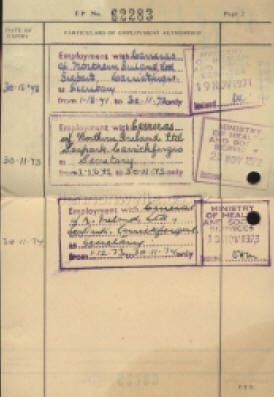 E P No. 62283
Page 2
DATE OF EXPIRY
PARTICULARS OF EMPLOYMENT AUTHORISED
Employment with Carreras
of Northern Ireland Ltd
Seapark, Carrickfergus
as Secretary
from 1·12·71 to 30·11·72 only
19 NOV 1971
30·11·73
Employment with Carreras
of Northern Ireland Ltd
Seapark, Carrickfergus
as Secretary
from 1·12·72 to 30·11·73 only
MINISTRY
OF HEALTH
AND SOC
SERVIC
NOV 1972
30·11·74
Employment with Carreras
of N. Ireland Ltd,
Seapark, Carrickfergus,
as Secretary
from 1·12·73 to 30·11·74 only
MINISTRY
OF HEAL
AND SOCIAL
SERVICES
NOV 1973
62283
P.T.O.